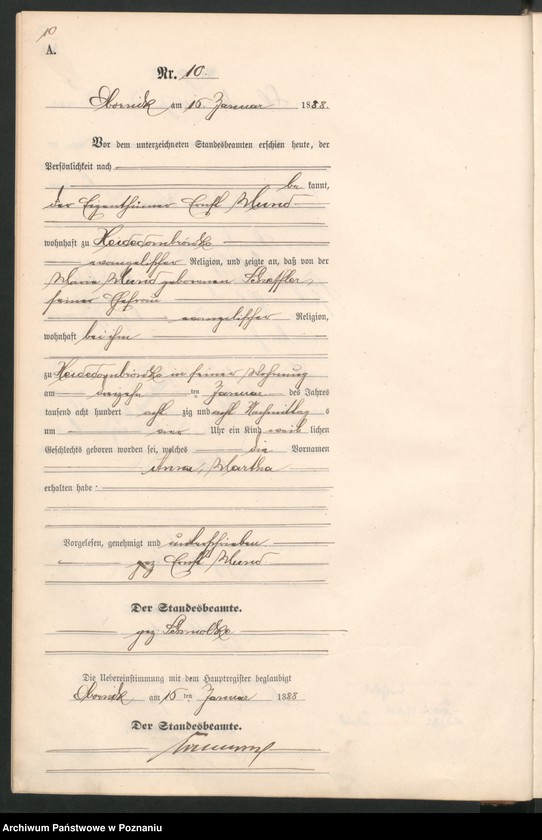 10
A.
Nr. 10.
Obornik am 16 Januar 1888.
Vor dem unterzeichneten Standesbeamten erschien heute, der
Persönlichkeit nach
be kannt,
der Eigenthümer Ernst Mund
wohnhaft zu
evangelischer Religion, und zeigte an, daß von der
Maria Mund geborenen Scheffler,
seiner Ehefrau
evangelischer Religion,
wohnhaft bei ihm
zu in seiner Wohnung
am dreizehn ten Januar des Jahres
tausend acht hundert acht zig und acht Nachmittag s
um vier Uhr ein Kind weib lichen
Geschlechts geboren worden sei, welches die Vornamen
Anna, Martha
erhalten habe
Vorgelesen, genehmigt und unterschrieben
gez Ernst Mund
Der Standesbeamte.
gez.
Die Uebereinstimmung mit dem Hauptregister beglaubigt
Obornik am 16 ten Januar 1888
Der Standesbeamte.
Archiwum Państwowe w Poznaniu